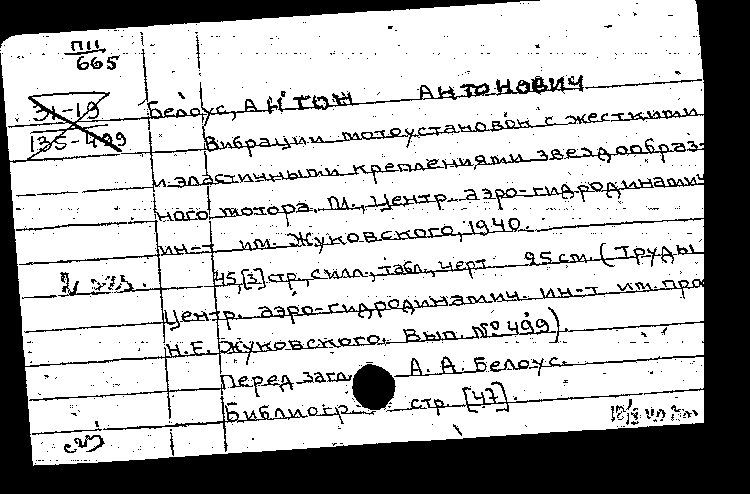 П11
665
31-19
135-499
Белоус, Антон Антонович
Вибрации мотоустановок с жесткими
и эластичными креплениями звездообраз-
ного мотора. М., Центр. аэро-гидродинамич.
ин-т им. Жуковского, 1940.
45,[3] стр., с илл., табл., черт. 25 см. (Труды
Центр. аэро-гидродинамич. ин-т им. про
Н.Е. Жуковского. Вып. № 499).
Перед загл. А. А. Белоус.
Библиогр стр. [47].